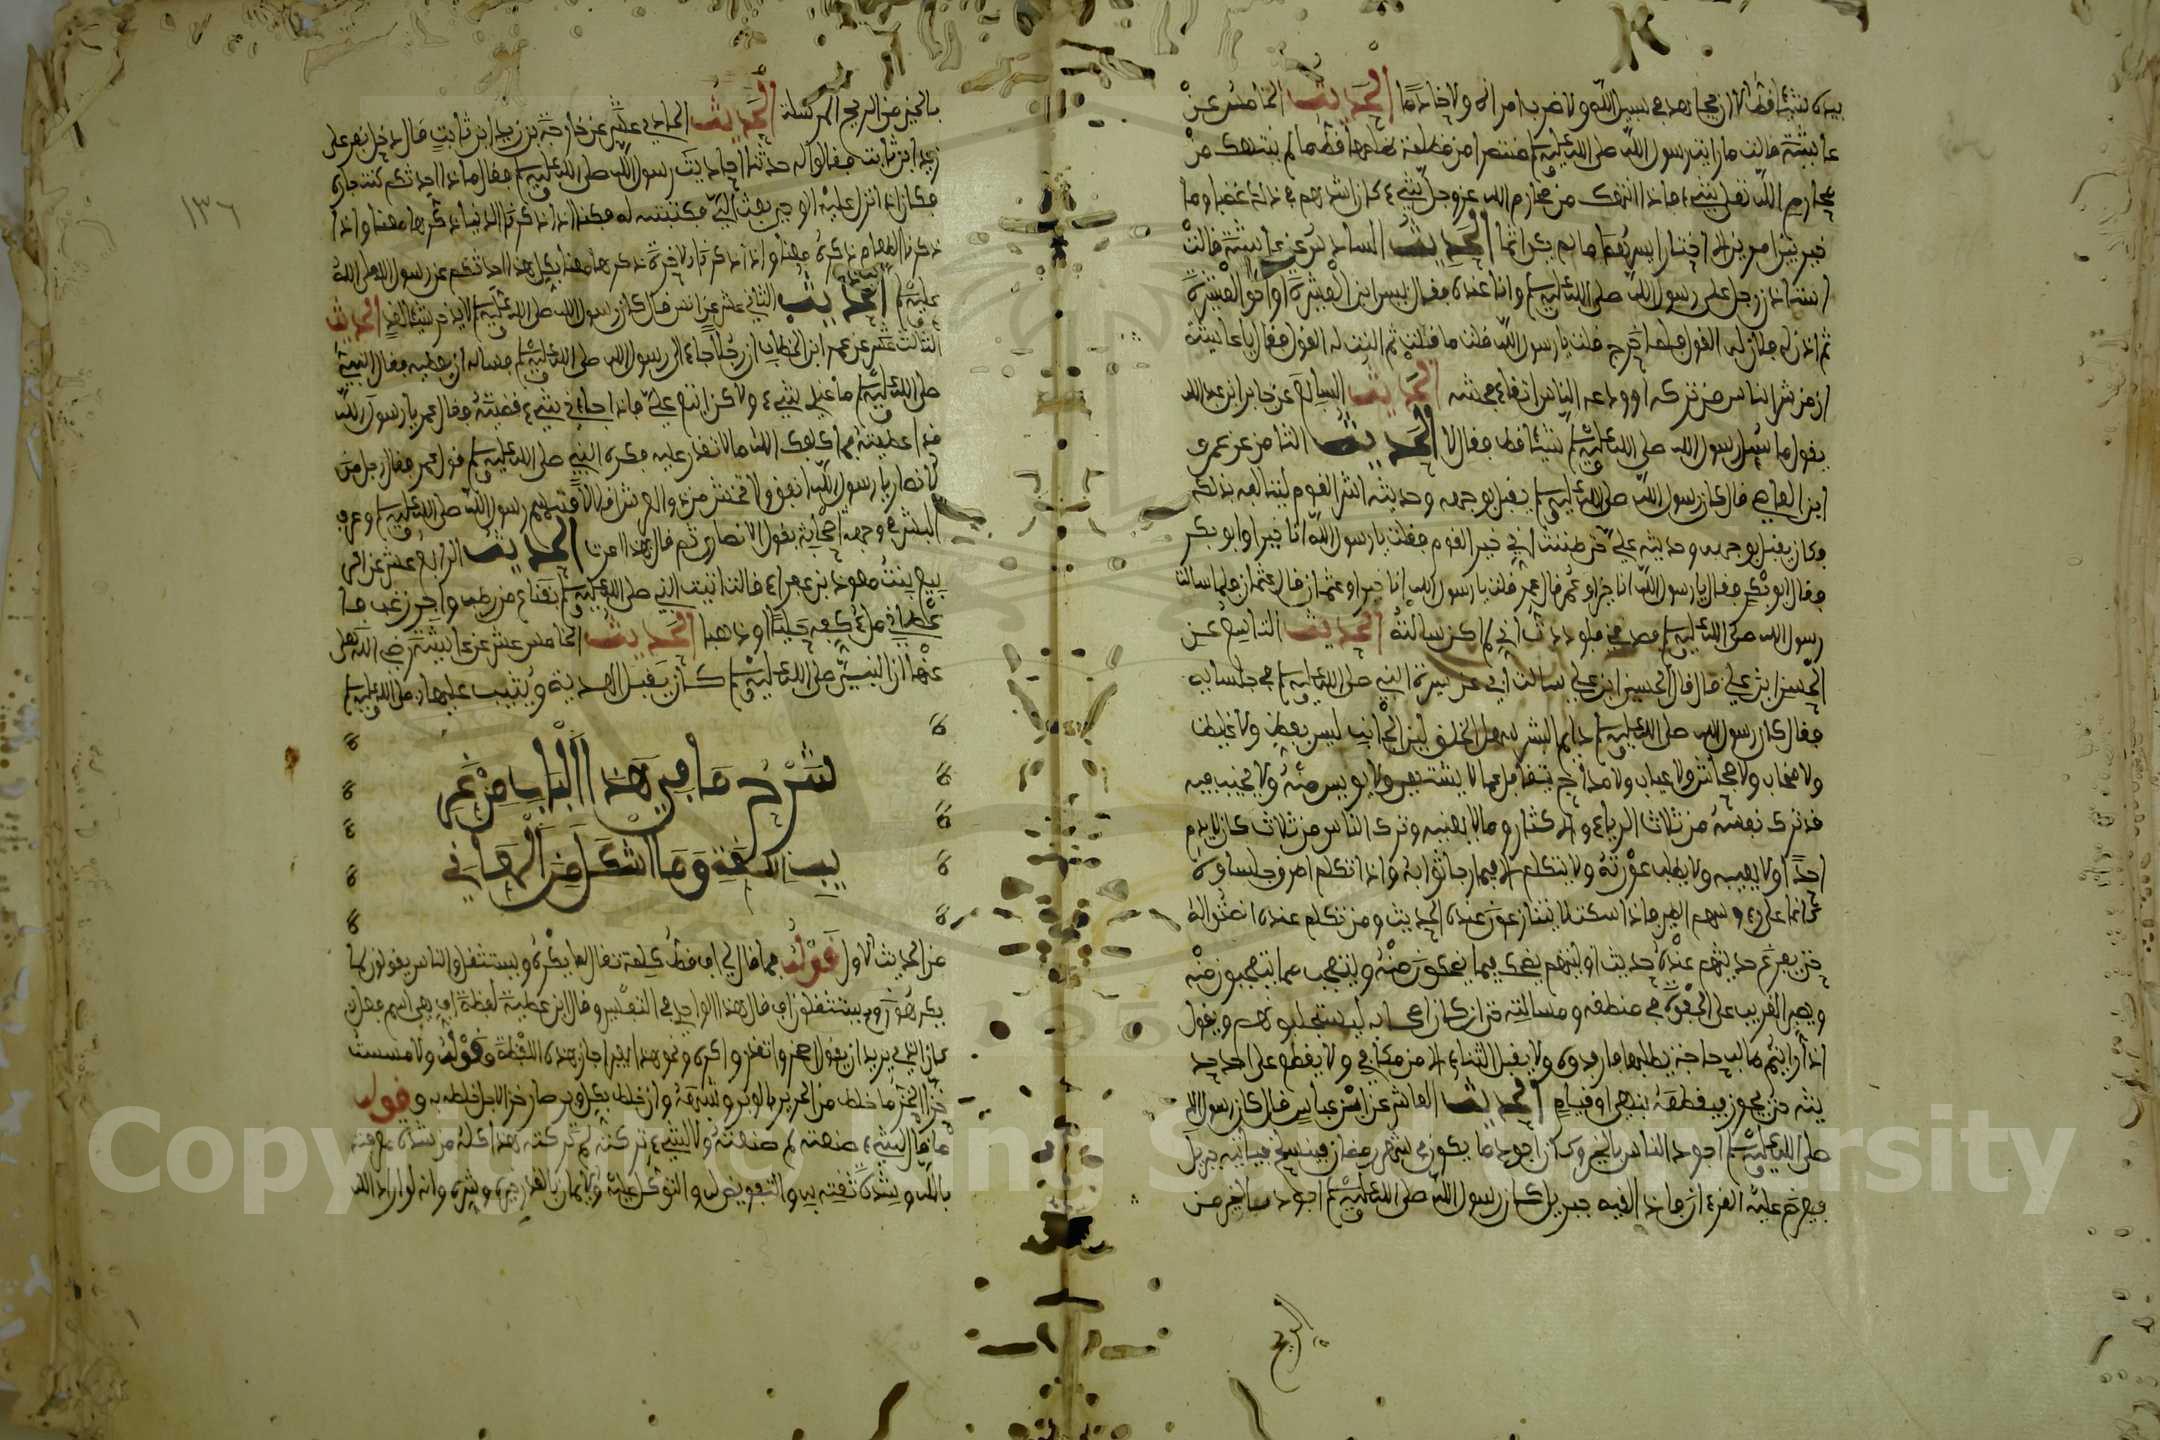 بيده شيئا قط الا ان يجاهد في سبيل الله ولا ضرب امراة ولا خادما الحديث الخامس عن
عايشة قالت ما رايت رسول الله صلى الله عليه وسلم منتصرا من مظلمة ظلمها قط ما لم ينتهك من
محارم الله تعلى شيء فاذا انتهك من محارم الله عز وجل شيء كان اشدهم في ذلك غضبا وما
خير بين امرين الا اختار ايسرهما ما لم يكن اثما الحديث السادس عن عايشة قالت
استاذن رجل على رسول الله صلى الله عليه وسلم وانا عنده فقال بيس ابن العشيرة او اخو العشيرة
ثم اذن له فالان له القول فلما خرج قلت يا رسول الله قلت ما قلت ثم النت له القول فقال يا عايشة
ان من شر الناس من تركه او ودعه الناس اتقاء فحشه الحديث السابع عن جابر ابن عبد الله
يقول ما سيل رسول الله صلى الله عليه وسلم شيئا قط فقال لا الحديث الثامن عن عمرو
ابن العاصي قال كان رسول الله صلى الله عليه وسلم يقبل بوجهه وحديثه اشر القوم يتالفه بذلك
وكان يقبل بوجهه وحديثه علي حتى ظننت اني خير القوم فقلت يا رسول الله انا خير او ابو بكر
فقال ابو بكر فقال يا رسول الله انا خير او عمر قال عمر قلت يا رسول الله انا خير او عثمان قال عثمان فلما سالت
رسول الله صلى الله عليه وسلم فصدقني فلوددت اني لم اكن سالته الحديث التاسع عن
الحسن ابن علي قال قال الحسين ابن علي سالت ابي عن سيرة النبي صلى الله عليه وسلم في جلسايه
فقال كان رسول الله صلى الله عليه وسلم دايم البشر سهل الخلق لين الجانب ليس بفظ ولا غليظ
ولا صخاب ولا فحاش ولا عياب ولا مداح يتغافل عما لا يشتهي ولا يويس منه ولا يخيب فيه
قد ترك نفسه من ثلاث الرياء والاكثار وما لا يعنيه وترك الناس من ثلاث كان لا يذم
احدا ولا يعيبه ولا يطلب عورته ولا يتكلم الا فيما رجا ثوابه واذا تكلم اطرق جلساوه
كانما على رءوسهم الطير فاذا سكت لا يتنازعون عنده الحديث ومن تكلم عنده انصتوا له
حتى يفرغ حديثهم عنده حديث اوليتهم يضحك مما يضحكون منه ويتعجب مما يتعجبون منه
ويصبر للغريب على الجفوة في منطقه ومسالته حتى ان كان اصحابه ليستجلبونهم ويقول
اذا رايتم طالب حاجة يطلبها فارفدوه ولا يقبل الثناء الا من مكافي ولا يقطع على احد حد
يثه حتى يجوز فيقطعه بنهي او قيام الحديث العاشر عن ابن عباس قال كان رسول الله
صلى الله عليه وسلم اجود الناس بالخير وكان اجود ما يكون في شهر رمضان حتى ينسلخ فياتيه جبريل
فيعرض عليه القرءان فاذا لقيه جبريل كان رسول الله صلى الله عليه وسلم اجود بالخير من
الريح
١٣٦
بالخير من الريح المرسلة الحديث الحادي عشر عن خارجة بن زيد ابن ثابت قال دخل نفر على
زيد ابن ثابت فقالوا له حدثنا احاديث رسول الله صلى الله عليه وسلم فقال ماذا احدثكم كنت جاره
فكان اذا انزل عليه الوحي بعث الي فكتبته له فكنا اذا ذكرنا الدنيا ذكرها معنا واذا
ذكرنا الطعام ذكره معنا واذا ذكرنا الاخرة ذكرها معنا فكل هذا احدثكم عن رسول الله صلى الله
عليه وسلم الحديث الثاني عشر عن انس قال كان رسول الله صلى الله عليه وسلم لا يدخر شيئا لغد الحديث
الثالث عشر عن عمر ابن الخطاب ان رجلا جاء الى رسول الله صلى الله عليه وسلم فساله ان يعطيه فقال النبي
صلى الله عليه وسلم ما عندي شيء ولاكن ابتع علي فاذا جاءني شيء قضيته فقال عمر يا رسول الله
قد اعطيته فما كلفك الله ما لا تقدر عليه فكره النبي صلى الله عليه وسلم قول عمر فقال رجل من
الانصار يا رسول الله انفق ولا تخش من ذي العرش اقلالا فتبسم رسول الله صلى الله عليه وسلم وعرف
البشر في وجهه لقول الانصاري ثم قال بهذا امرت الحديث الرابع عشر عن الر
بيع بنت معوذ بن عفراء قالت اتيت النبي صلى الله عليه وسلم بقناع من رطب واجر زغب فا
عطاني ملء كفه حليا او ذهبا الحديث الخامس عشر عن عايشة رضي الله تعلى
عنها ان النبي صلى الله عليه وسلم كان يقبل الهدية ويثيب عليها صلى الله عليه وسلم
شرح ما في هذا الباب من غر
يب اللغة وما اشكل من المعاني
من الحديث الاول قوله فما قال لي اف قط كلمة تقال لما يكره ويستثقل والناس يقولون لما
يكرهون ويستثقلون اف قال هذا الواحدي في التفسير وقال ابن عطية لفظة اف هي اسم فعل
كان الذي يريد ان يقول اضجر واتقذر واكره ونحو هذا يعبر ايجازا بهذه اللفظة وقوله ولا مسست
خزا الخز ما خلط من الحرير بالوبر وشبهه وان خلط بكل وبر صار خزا لاجل خلطه به وقوله
ما قال لشيء صنعته لم صنعته ولا لشيء تركته لم تركته هذا كله من شدة معرفته
بالله وشدة ثقته به والتفويض له والتوكل عليه والايمان بالقدر خيره وشره وانه لو اراد الله
Copyright © King Saud University